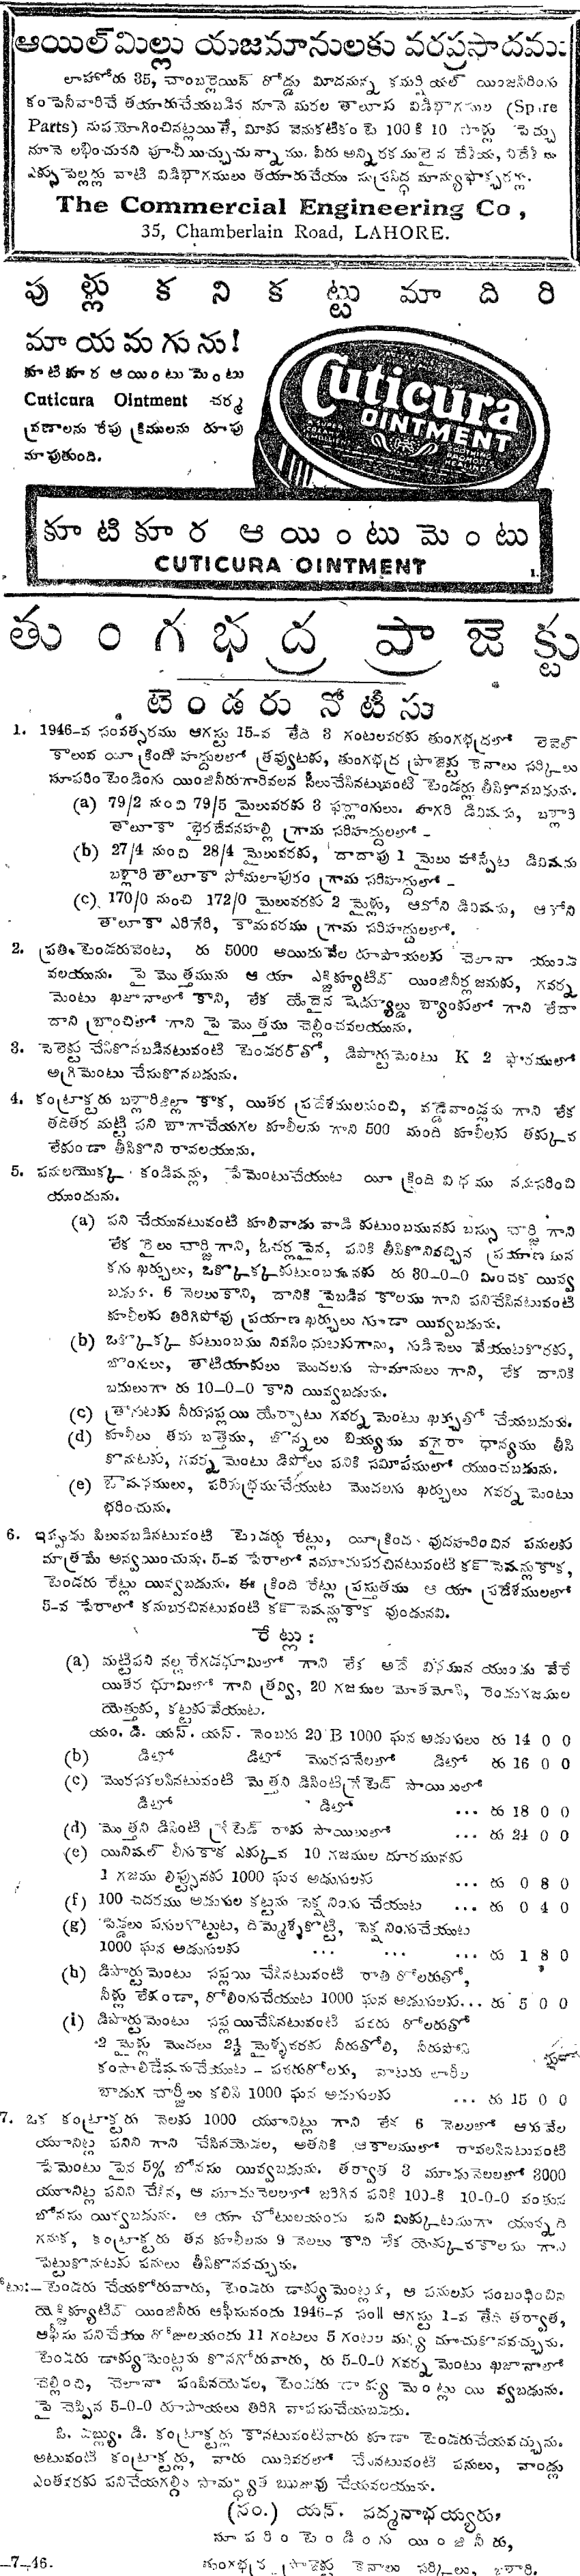 ఆయిల్ మిల్లు యజమానులకు వరప్రసాదము
లాహోరు 35, చాంబర్లెయిన్ రోడ్డు మీదనున్న కమర్షియల్ యింజనీరింగు
కంపెనీవారిచే తయారుచేయబడిన నూనె మరల తాలూకు విడిభాగముల (Spare
Parts) నుపయోగించినట్లయితే, మీకు వెనుకటికంటె 100 కి 10 పాళ్లు హెచ్చు
నూనె లభించునని పూచీ యిచ్చుచున్నాము. వీరు అన్ని రకములైన దేశీయ, విదేశీయ
ఎక్స్పెల్లర్లు వాటి విడిభాగములు తయారుచేయు సుప్రసిద్ధ మాన్యుఫాక్చరర్లు.
The Commercial Engineering Co,
35, Chamberlain Road, LAHORE.
పుళ్లు కనికట్టు మాదిరి
మాయమగును!
కూటికూర ఆయింటుమెంటు
Cuticura Ointment చర్మ
వ్రణాలను రేపు క్రిములను రూపు
మాపుతుంది.
Cuticura
OINTMENT
కూటికూర ఆయింటుమెంటు
CUTICURA OINTMENT
1.
తుంగభద్ర ప్రాజెక్టు
టెండరు నోటీసు
1. 1946-వ సంవత్సరము ఆగస్టు 15-వ తేది 3 గంటలవరకు తుంగభద్రలో లెవెల్
కాలువ యీ క్రింది హద్దులలో త్రవ్వుటకు, తుంగభద్ర ప్రాజెక్టు కెనాలు సర్కిలు
సూపరింటెండింగు యింజినీరుగారివలన సీలుచేసినటువంటి టెండర్లు తీసికొనబడును.
(a) 79/2 నుంచి 79/5 మైలువరకు 3 ఫర్లాంగులు. హగరి డివిషను, బళ్లారి
తాలూకా భైరదేవనహల్లి గ్రామ సరిహద్దులలో -
(b) 27/4 నుంచి 28/4 మైలువరకు, దాదాపు 1 మైలు హాస్పేట డివిషను
బళ్లారి తాలూకా సోమలాపురం గ్రామ సరిహద్దులో -
(c) 170/0 నుంచి 172/0 మైలువరకు 2 మైళ్లు, ఆదోని డివిషను, ఆదోని
తాలూకా ఎరిగేరి, కామవరము గ్రామ సరిహద్దులలో.
2. ప్రతి టెండరువెంట, రు 5000 అయిదువేల రూపాయలకు చెలానా యుంచ
వలయును. పై మొత్తమును ఆ యా ఎక్జిక్యూటివ్ యింజినీర్ల జమకు, గవర్న
మెంటు ఖజానాలో కాని, లేక యేదైన షెడ్యూల్డు బ్యాంకులో గాని లేదా
దాని బ్రాంచిలో గాని పై మొత్తము చెల్లించవలయును.
3. సెలెక్టు చేసికొనబడినటువంటి టెండరర్‌తో, డిపార్టుమెంటు K 2 ఫారములో
అగ్రిమెంటు చేసుకొనబడును.
4. కంట్రాక్టరు బళ్లారిజిల్లా కాక, యితర ప్రదేశములనుంచి, వడ్డెవాండ్లను గాని లేక
తదితర మట్టి పని బాగాచేయగల కూలీలను గాని 500 మంది కూలీలకు తక్కువ
లేకుండా తీసికొని రావలయును.
5. పనులయొక్క కండిషన్లు, పేమెంటుచేయుట యీ క్రింది విధము ననుసరించి
యుండును.
(a) పని చేయునటువంటి కూలివాడు వాడి కుటుంబమునకు బస్సు చార్జి గాని
లేక రైలు చార్జి గాని, ఓచర్ల పైన, పనికి తీసికొనివచ్చిన ప్రయాణమున
కగు ఖర్చులు, ఒకొక్కకుటుంబమునకు రు 30-0-0 మించక యివ్వ
బడును. 6 నెలలుకాని, దానికి పైబడిన కాలము గాని పనిచేసినటువంటి
కూలీలకు తిరిగిపోవు ప్రయాణ ఖర్చులు గూడా యివ్వబడును.
(b) ఒక్కొక్క కుటుంబము నివసించుటకుగాను, గుడిసెలు వేయుటకొరకు,
బొంగులు, తాటియాకులు మొదలగు సామానులు గాని, లేక దానికి
బదులుగా రు 10-0-0 కాని యివ్వబడును.
(c) త్రాగుటకు నీరుసప్లయి యేర్పాటు గవర్నమెంటు ఖర్చుతో చేయబడును.
(d) కూలీలు తమ బత్తెము, జొన్నలు బియ్యము వగైరా ధాన్యము తీసి
కొనుటకు, గవర్నమెంటు డిపోలు పనికి సమీపములో యుంచబడును.
(e) ఔషధములు, పరిశుభ్రముచేయుట మొదలగు ఖర్చులు గవర్నమెంటు
భరించును.
6. ఇప్పుడు పిలువబడినటువంటి టెండర్లు రేట్లు, యీక్రింద వుదహరించిన పనులకు
మాత్రమే అన్వయించును. 5-వ పేరాలో నమూదుపరచినటువంటి కన్ సెషన్లుకాక,
టెండరు రేట్లు యివ్వబడును. ఈ క్రింది రేట్లు ప్రస్తుతము ఆ యా ప్రదేశములలో
5-వ పేరాలో కనుబరచినటువంటి కన్ సెషన్లుకాక వుండునవి.
రేట్లు:
(a) మట్టిపని నల్ల రేగడభూమిలో గాని లేక అదే విధమున యుండు వేరే
యితర భూమిలో గాని త్రవ్వి, 20 గజముల మోతమోసి, రెండుగజముల
యెత్తుకు, కట్టకువేయుట.
యం. డి. యస్. యస్. నెంబరు 20 B 1000 ఘన అడుగులు రు 14 0 0
(b) డిటో డిటో మొరసునేలలో డిటో రు 16 0 0
(c) మొరసుకలసినటువంటి మెత్తని డిసింటిగ్రేటెడ్ సాయిలులో
డిటో డిటో ... రు 18 0 0
(d) మెత్తని డిసింటిగ్రేటెడ్ రాకు సాయిలులో ... రు 24 0 0
(e) యినిషల్ లీడుకాక ఎక్కువ 10 గజముల దూరమునకు
1 గజము లిఫ్టునకు 1000 ఘన అడుగులకు ... రు 0 8 0
(f) 100 చదరము అడుగుల కట్టను సెక్షనింగు చేయుట ... రు 0 4 0
(g) పెడ్డలు పగులగొట్టుట, దిమ్మెశ్శకొట్టి, సెక్షనింగుచేయుట
1000 ఘన అడుగులకు ... ... ... రు 1 8 0
(h) డిపార్టుమెంటు సప్లయి చేసినటువంటి రాతి రోలరుతో,
నీళ్లు లేకుండా, రోలింగుచేయుట 1000 ఘన అడుగులకు... రు 5 0 0
(i) డిపార్టుమెంటు సప్లయిచేసినటువంటి పవరు రోలరుతో
2 మైళ్లు మొదలు 2½ మైళ్ళవరకు నీరుతోలి, నీరుపోసి
కంసాలిడేషనుచేయుట - పవరురోలరు, వాటరు లారీల
బాడుగ చార్జీలు కలిసి 1000 ఘన అడుగులకు ... రు 15 0 0
7. ఒక కంట్రాక్టరు నెలకు 1000 యూనిట్లు గాని లేక 6 నెలలలో ఆరువేల
యూనిట్ల పనిని గాని చేసినయెడల, అతనికి ఆకాలములో రావలసినటువంటి
పేమెంటు పైన 5% బోనసు యివ్వబడును. తర్వాత 3 మూడునెలలలో 3000
యూనిట్ల పనిని చేసిన, ఆ మూడునెలలలో జరిగిన పనికి 100-కి 10-0-0 వంతున
బోనసు యివ్వబడును. ఆ యా చోటులయందు పని మిక్కుటముగా యున్నది
గనుక, కంట్రాక్టరు తన కూలీలను 9 నెలలు కాని లేక యెక్కువకాలము గాని
పెట్టుకొనుటకు పనులు తీసికొనవచ్చును.
నోటు:—టెండరు చేయకోరువారు, టెండరు డాక్యుమెంట్లకు, ఆ పనులకు సంబంధించిన
యెక్జిక్యూటివ్ యింజినీరు ఆఫీసునందు 1946-వ సం॥ ఆగస్టు 1-వ తేది తర్వాత,
ఆఫీసు పనిచేయు రోజులయందు 11 గంటలు 5 గంటల మధ్య చూచుకొనవచ్చును.
టెండరు డాక్యుమెంట్లను కొనగోరువారు, రు 5-0-0 గవర్నమెంటు ఖజానాలో
చెల్లించి, చెలానా పంపినయెడల, టెండరు డాక్యుమెంట్లు యివ్వబడును.
పై చెప్పిన 5-0-0 రూపాయలు తిరిగి వాపసుచేయబడదు.
పి. డబ్ల్యు. డి. కంట్రాక్టర్లు కానటువంటివారు కూడా టెండరుచేయవచ్చును.
అటువంటి కంట్రాక్టర్లు, వారు యిదివరలో చేసినటువంటి పనులు, వాండ్లు
ఎంతవరకు పనిచేయగల్గిన సామర్థ్యత ఋజువు చేయవలయును.
(సం.) యన్. పద్మనాభయ్యరు,
సూపరింటెండింగు యింజినీరు,
-7-46. తుంగభద్ర ప్రాజెక్టు కెనాలు సర్కిలు, బళ్లారి.